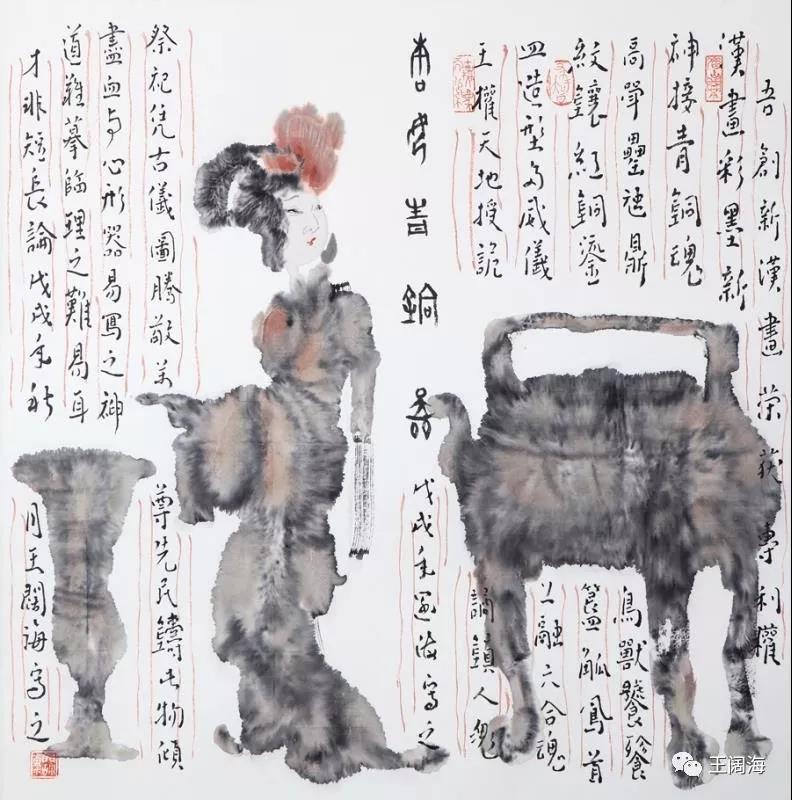 吾創新漢畫榮获專利權
漢畫彩墨新
神接青銅魂
高斝罍祉鼎
紋鑲紅銅鎏
皿造型多威儀
王權天地授詭
鳥獸饕餮
簋觚鳳首
上融六合魂
謫鎮人鬼
青銅器
戊戌年阔海寫之
祭祀凭古儀圖騰敬羊
尊先民鑄此物傾
盡血与心形器易寫之神
道難摹臨理之難易耳
才非短長論戊戌年秋
月王闊海写之
王阔海